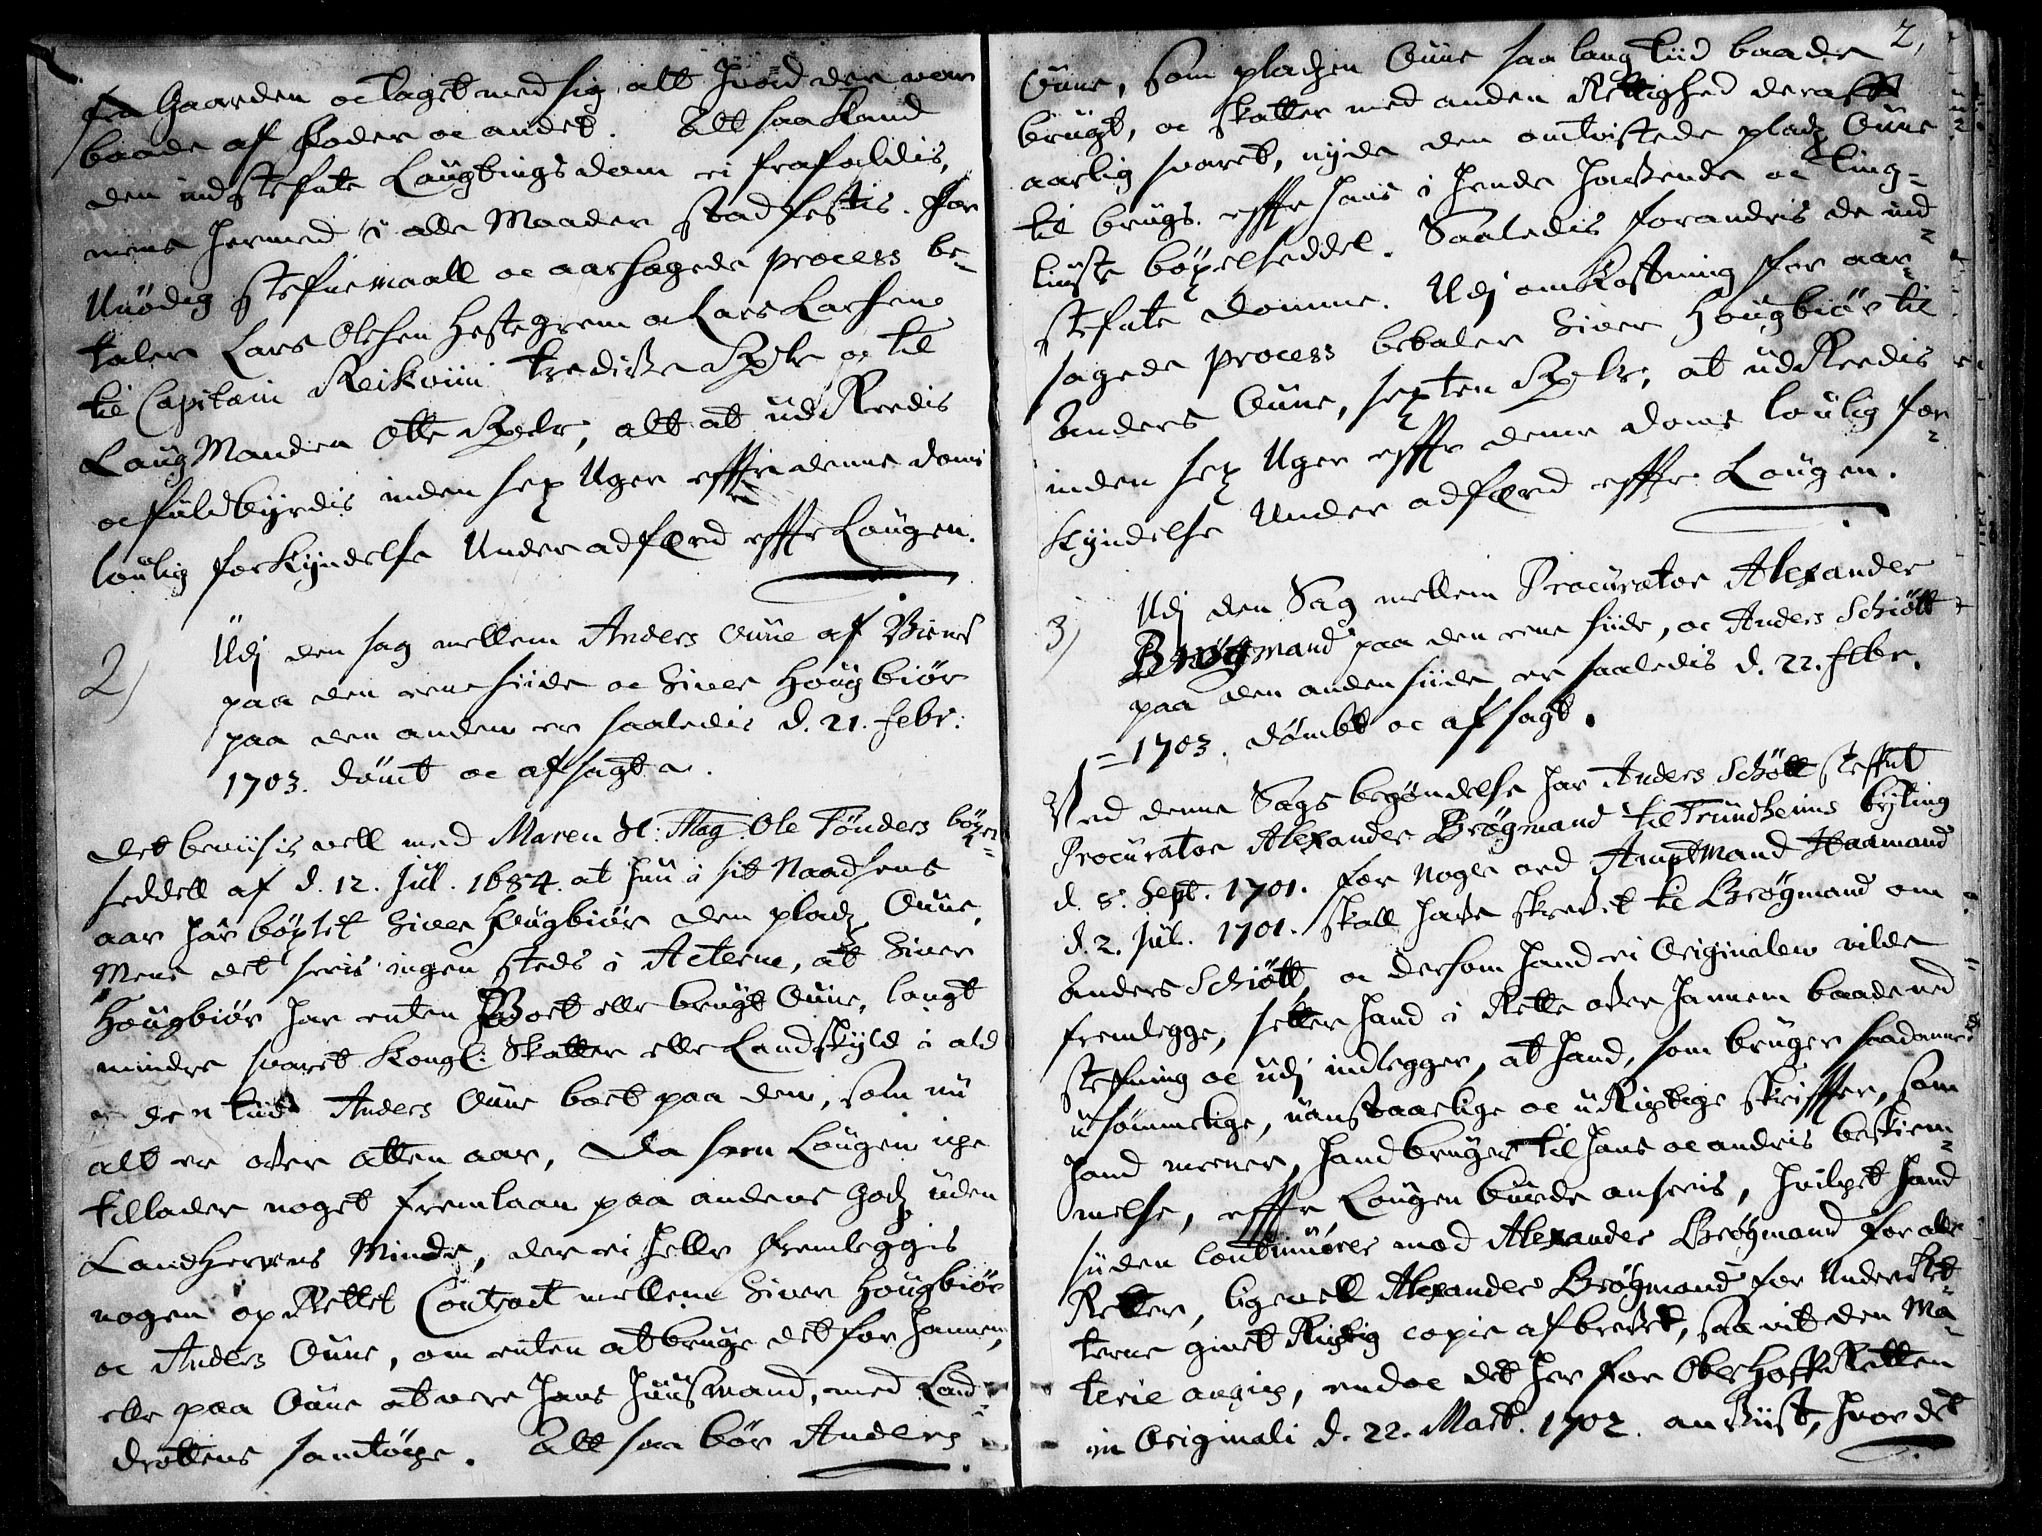 fra Gaarden oc taget med sig alt hvad der var
baade af Foder oc andet. Alt saa kand
den indstefnte Laugtings dom ei frafaldis,
mens hermed i alle Maader stadfestis. For
Unødig stefnemaall oc aarsagede process be-
taler Lars Olesen Hestegrem oc Lars Larsen
til Capitain Reikviin tredive Rdlr oc til
LaugManden Otte Rdlr, alt at udReedis
oc fuldbyrdis inden sex Uger effter denne doms
loulig forkyndelse Under adfærd effter Lougen.
2) Udj den sag mellem Anders Oune af Biønes
paa den eene siide oc Siver Hougbiør
paa den anden er saaledis d. 21. febr:
1703. dømt oc afsagt.
Det beviisis vell med Maren Sl: Mag. Ole Tønders böxel-
seddell af d. 12. jul. 1684. at hun i sit Naadsens
aar har böxlet Siver Hougbiør den pladz Oune,
Mens det seeis ingen steds i Acterne, at Siver
Hougbiør har enten Boet eller brugt Oune, langt
mindre svaret Kongl: Skatter eller Landskyld i ald
den tiid Anders Oune boet paa den, som nu
alt er over atten aar, Da som Lougen icke
tillader noget fremlaan paa andens Godz uden
LandHerrens Minde, der ei heller fremleggis
nogen opRettet Contract mellem Siver Hougbiør
oc Anders Oune, om enten at bruge det for hannem,
eller paa Oune at vere hans Huusmand, med Land-
drottens samtöcke. Alt saa bør Anders
2,
Oune, som pladzen Oune saa lang tiid baade
brugt, oc skatter med anden Rettighed deraff
aarlig svaret, nyde den omtvistede pladz Oune
til brugs effter hans i hende havende oc ting-
liuste böxelseddel. Saaledis forandris de ind-
stefnte domme. Udj omkostning for aar-
sagede process betaler Siver Hougbiør til
Anders Oune, sexten Rdlr, at udReedis
inden sex Uger effter denne doms loulig for-
kyndelse Under adfærd effter Lougen.
3) Udj den Sag mellem Procurator Alexander
Brøgmand paa den eene siide, oc Anders Schiøtt
paa den anden siide er saaledis d. 22. febr.
1703. dømbt oc afsagt.
Ved denne Sags begøndelse har Anders Schøtt steffnt
Procurator Alexander Brøgmand til Trundheims byting
d. 8. Sept. 1701. for noger ord Amptmand Haamand
d. 2. jul. 1701. skall have skrevet til Brøgmand om
Anders Schiøtt, oc dersom hand ei Originalen vilde
fremlegge, setter hand i Rette over hannem baade ved
stefning oc udj indlegger, at hand, som bruger saadanne
usømmelige, uanstaaelige oc uRigtige skriffter, som
hand meener, hand bruger til hans oc andris beskiem-
melse, effter Lougen burde anseeis, hvilket hand
siiden continuerer mod Alexander Brøgmand for alle
Retter, ligevell Alexander Brøgmand for UnderRet-
terne givet Rigtig copie af brevet, saa vit den Ma-
terie angick, endoc det her for OberHoffRetten
in Originali d. 22. Mart. 1702. anviist, hvor det